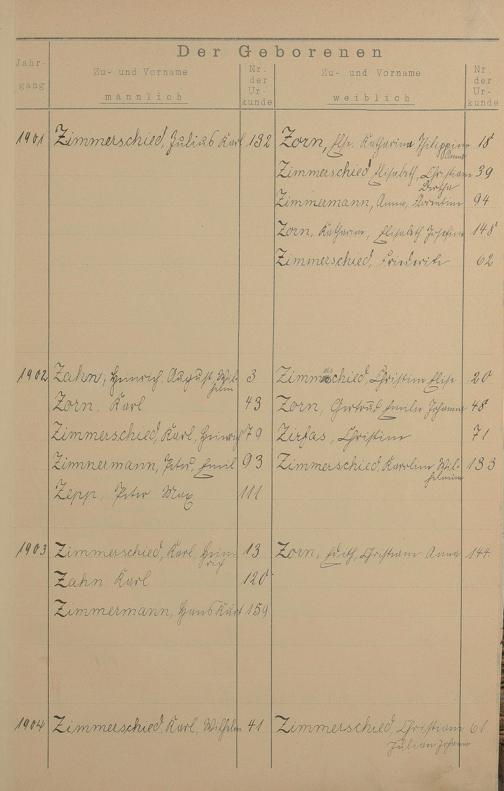 Der Geborenen
Jahr-
gang
Zu- und Vorname
männlich
Nr.
der
Ur-
kunde
Zu- und Vorname
weiblich
Nr.
der
Ur-
kunde
1901 Zimmerschied, Julius Karl 132 Zorn, Else Katharina Philippine 18
Anna
Zimmerschied Elisabeth, Christiane 39
Bertha
Zimmermann, Anna, Florentine 94
Zorn, Katharine, Elisabeth Josefine 148
Zimmerschied, Friederike 62
1902 Zahn, Heinrich, August, Wil- 3 Zimmerschied, Christine Elise 20
helm
Zorn, Karl 43 Zorn, Gertrud Emilie Johanna 48
Zimmerschied, Karl, Heinrich 79 Zirfas, Christine 71
Zimmermann, Peter, Emil 93 Zimmerschied Karoline Wil- 133
helmine
Zepp, Peter Max 111
1903 Zimmerschied, Karl Hein- 13 Zorn, Edith, Christiane Anna 144
rich
Zahn Karl 120
Zimmermann, Hans Kurt 159
1904 Zimmerschied, Karl, Wilhelm 41 Zimmerschied, Christiane 61
Juliane Johanna